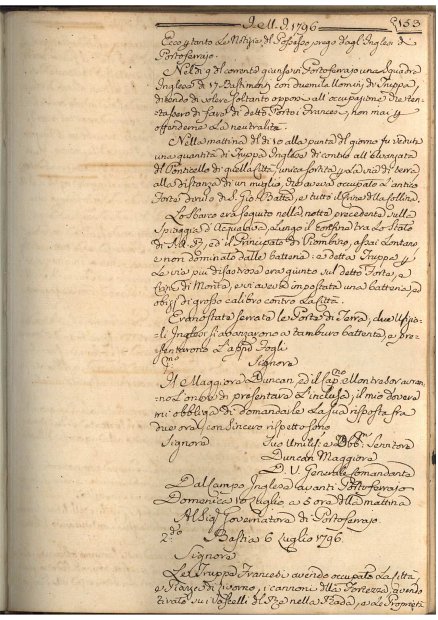 I. M. I. 1796
153
Ecco pertanto le Notizie del Possesso preso dagl' Inglesi di
Portoferrajo.
Nel dì 9 del corrente giunse in Portoferrajo una Squadra
Inglese di 17 Bastimenti con duemila Uomini di Truppa,
dicendo di volere soltanto opporsi all' occupazione che ten-
tassero di fare di detto Porto i Francesi, non mai per
offenderne la neutralità.
Nella mattina del dì 10 alla punta del giorno fu veduta
una quantità di Truppa Inglese di contro all' avanzata
del Ponticello di quella Città, unica sortita per la via di terra
alla distanza di un miglio, che aveva occupato l' antico
Forte diruto di S. Gio: Batta, e tutto il fine della Collina.
Lo sbarco era seguito nella notte precedente sulla
Spiaggia d' Acquaviva, lungo il Confine tra lo Stato
di S. A. R. ed il Principato di Piombino, assai lontano,
e non dominato dalle batterie: e detta Truppa per
le vie più disastrose era giunta sul detto Forte, e
con di Monte, e vi aveva impostata una batteria, e
obizzi di grosso calibro contro la Città.
Erano state serrate le Porte di Terra, due Uffizia-
li Inglesi si avanzarono a tamburo battente, e pre-
sentarono l' appiè Fogli
1.mo Signore
Il Maggiore Duncan, ed il Cap.no Montresor avran-
no l' onore di presentare l' inclusa; il mio dovere
mi obbliga di domandarle la sua risposta fra
due ore, e con sincero rispetto sono
Signore Suo Umiliss: e Servitore
Duncan Maggiore
Generale Comandante
Dal Campo Inglese avanti Portoferrajo
Domenica 10 Luglio a 5 ore della mattina
Al Sig. Governatore di Portoferrajo.
2.do Bastia 6 Luglio 1796.
Signore
Le Truppe Francesi avendo occupato la Città,
e Piazze di Livorno, i cannoni della Fortezza avendo
tirato su i Vascelli del Re nella Rada, e le Proprietà